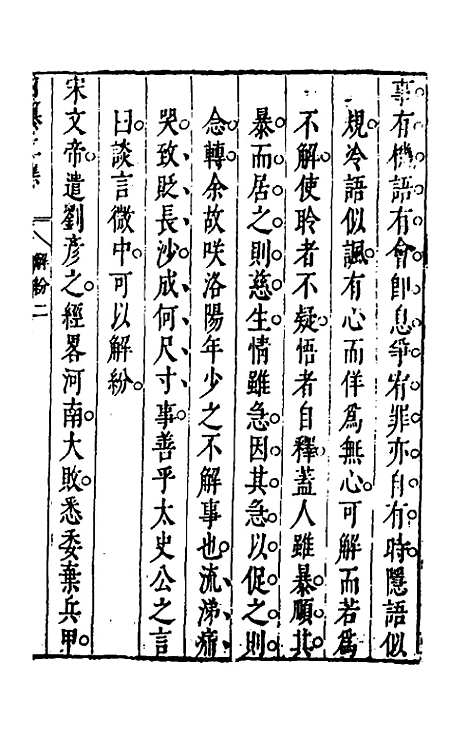 事有機語有會即息爭宥罪亦自有時隱語似
規冷語似諷有心而佯爲無心可解而若爲
不解使聆者不疑悟者自釋蓋人雖暴順其
暴而居之則慈生情雖急因其急以促之則
念轉余故咲洛陽年少之不解事也流涕痛
哭致貶長沙成何尺寸事善乎太史公之言
曰談言微中可以解紛
宋文帝遣劉彥之經畧河南大敗悉委棄兵甲
解紛二